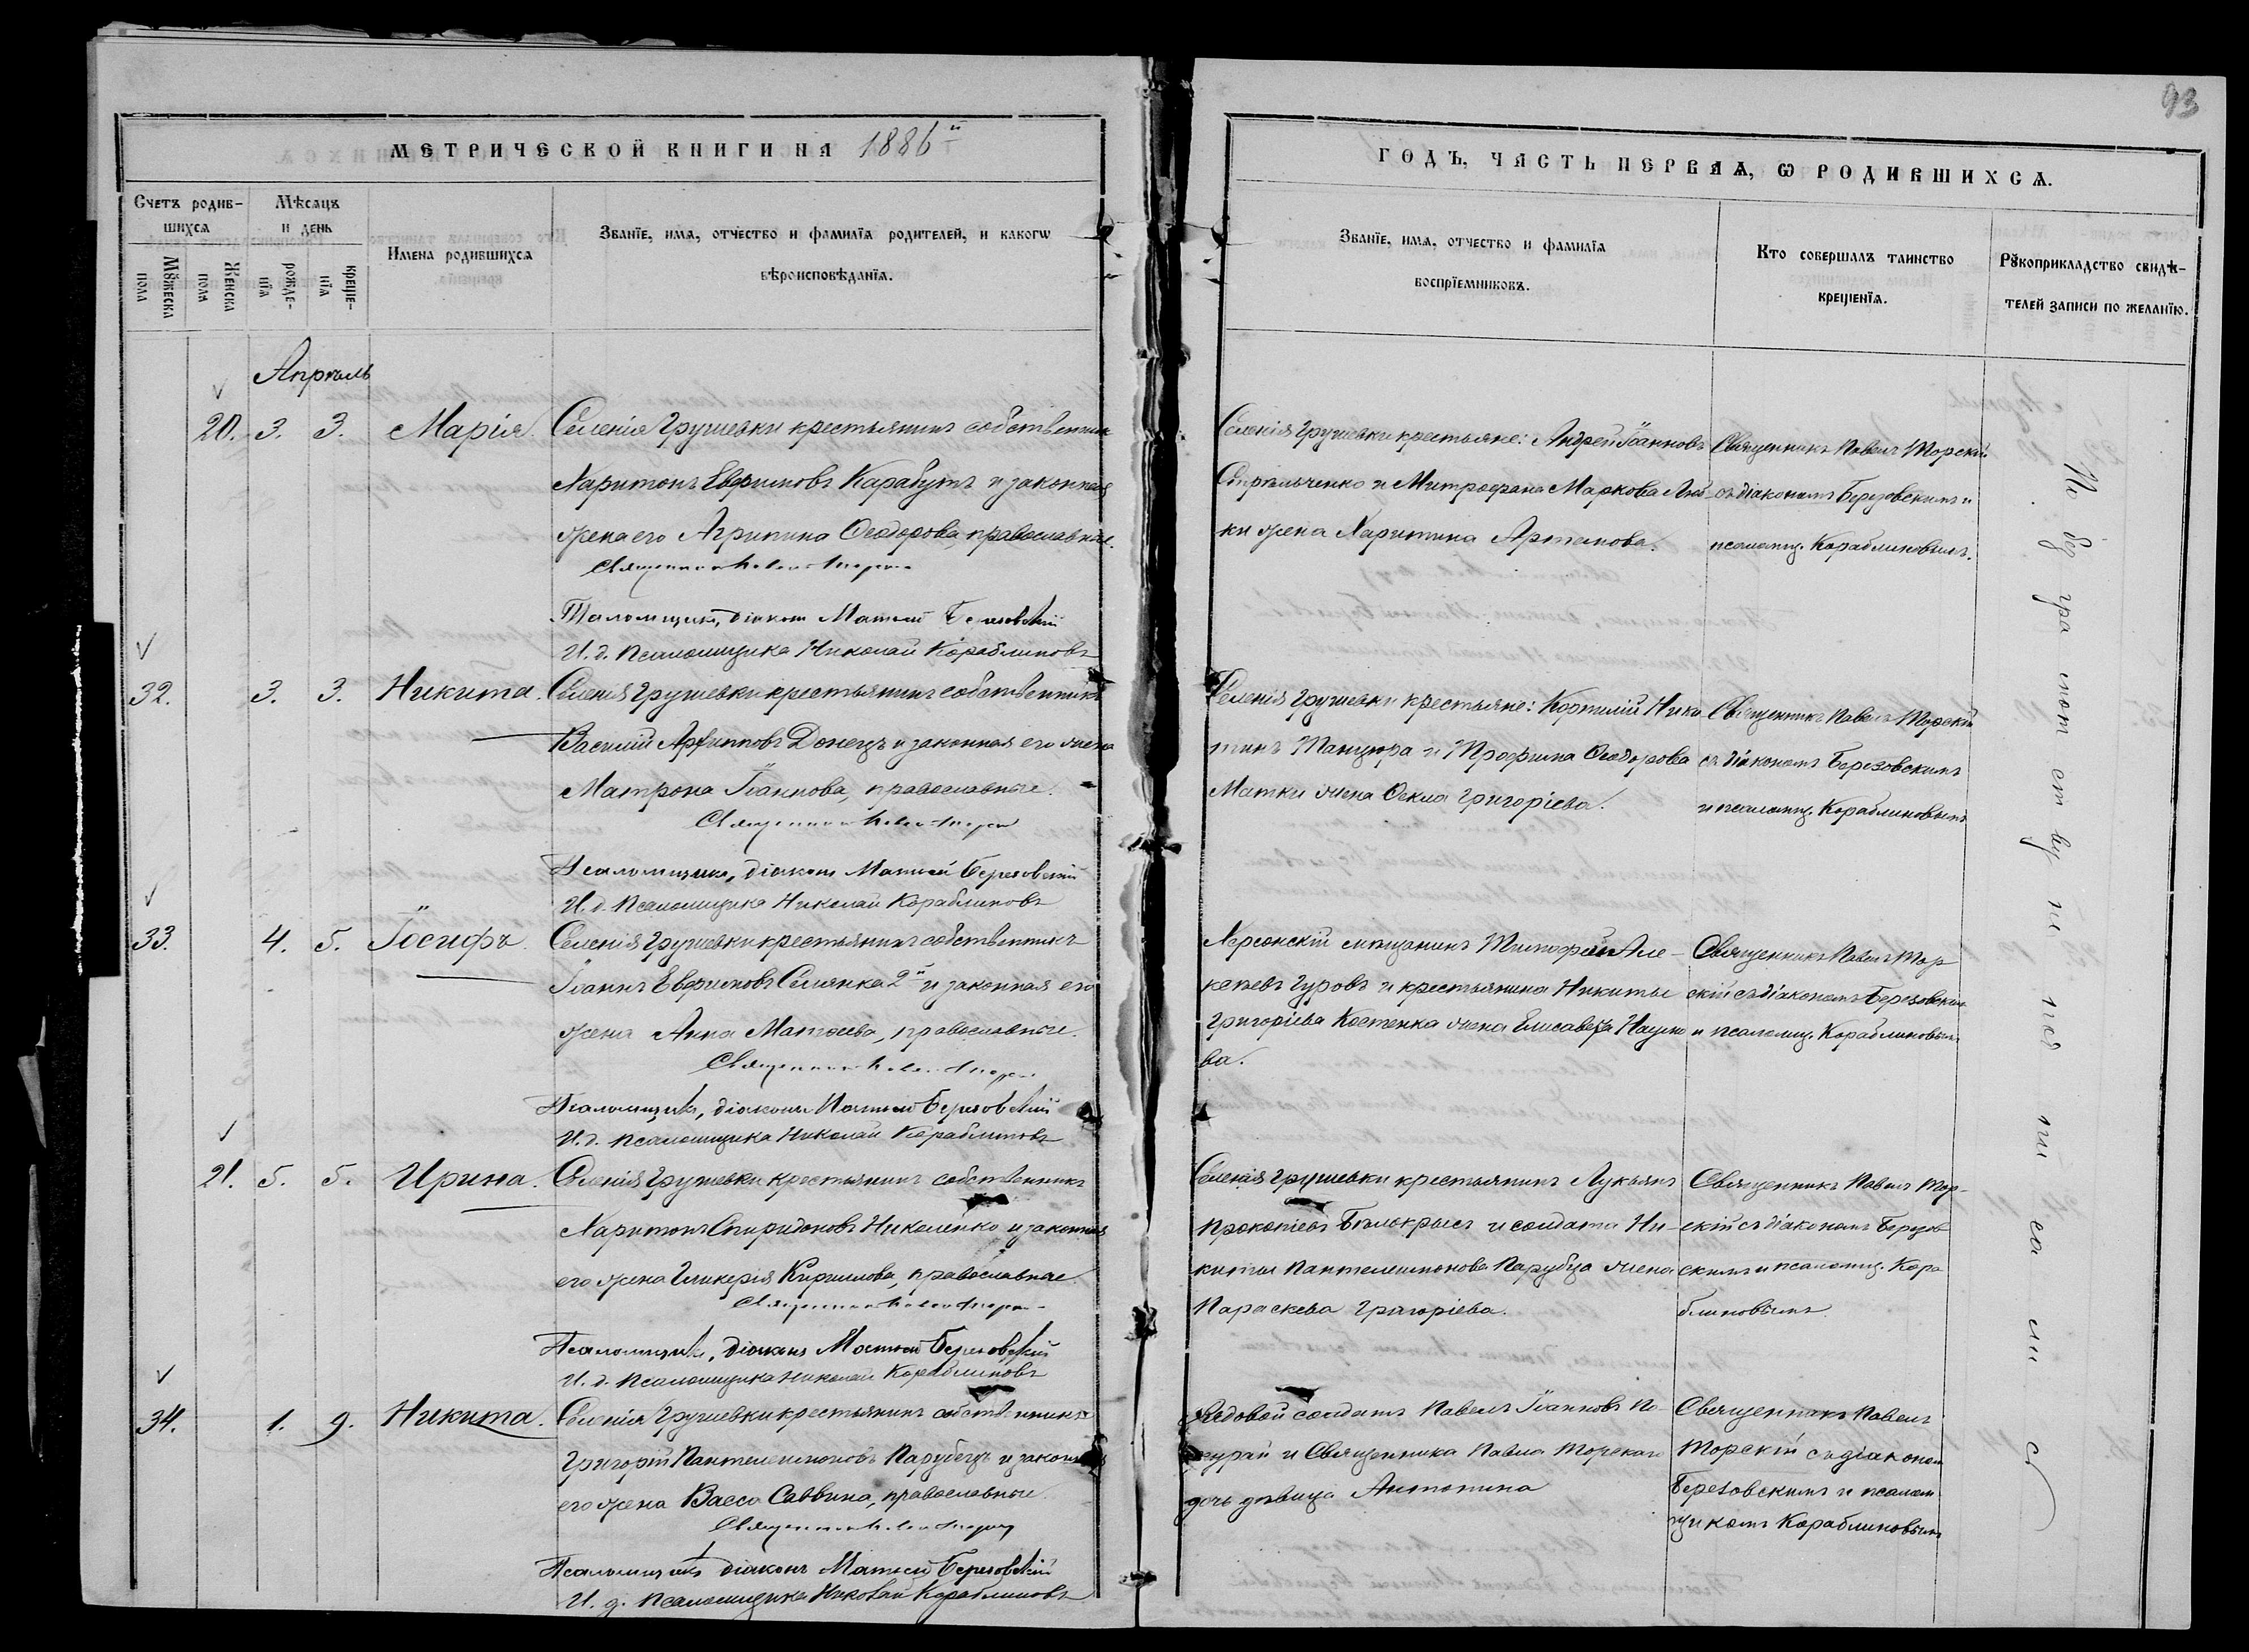 93
МЕТРИЧЕСКОЙ КНИГИ НА 1886й
ГОДЪ, ЧАСТЬ ПЕРВАЯ, Ѡ РОДИВШИХСЯ.
Счетъ родив-
шихся
Мѣсяцъ
и день
Мꙋжеска
пола
Женска
пола
рожде-
нїя
креще-
нїя
Имена родившихся
Званїе, имя, отчество и фамилїя родителей, и какогѡ
вѣроисповѣданїя.
Званїе, имя, отчество и фамилїя
воспрїемниковъ.
Кто совершалъ таинство
крещенїя.
Рꙋкоприкладство свидѣ-
телей записи по желанїю.
Апрѣль
20. 3. 3. Марія.
Селенія Грушевки крестьянинъ собственникъ
Харитонъ Евфимовъ Карабутъ и законная
жена его Агрипина Ѳеодорова, православные.
Священникъ Павелъ Торскій
Псаломщикъ, діаконъ Матѳей Березовскій
И. д. псаломщика Николай Кораблиновъ
Селенія Грушевки крестьяне: Андрей Іоанновъ
Стрѣльченко и Митрофана Маркова
ки жена Харитина Артемова.
Священникъ Павелъ Торскій
съ діакономъ Березовскимъ и
псаломщ. Кораблиновымъ.
32. 3. 3. Никита.
Селенія Грушевки крестьянинъ собственникъ
Василій Архиповъ Донецъ и законная его жена
Матрона Іоаннова, православные.
Священникъ Павелъ Торскій
Псаломщикъ, діаконъ Матѳей Березовскій
И. д. псаломщика Николай Кораблиновъ
Селенія Грушевки крестьяне: Корнилій Ники
тинъ Танцюра и Трофима Ѳеодорова
Матки жена Ѳекла Григоріева.
Священникъ Павелъ Торскій
съ діакономъ Березовскимъ
и псаломщ. Кораблиновымъ
33. 4. 5. Іосифъ.
Селенія Грушевки крестьянинъ собственникъ
Іоаннъ Евфимовъ Семянка 2й и законная его
жена Анна Матѳеева, православные.
Священникъ Павелъ Торскій
Псаломщикъ, діаконъ Матѳей Березовскій
И. д. псаломщика Николай Кораблиновъ
Херсонскій мѣщанинъ Тимофей Але-
ксѣевъ Гуровъ и крестьянина Никиты
Григоріева Костенка жена Елисавета Наумо
ва.
Священникъ Павелъ Тор
скій съ діакономъ Березовскимъ
и псаломщ. Кораблиновымъ
21. 5. 5. Ирина.
Селенія Грушевки крестьянинъ собственникъ
Харитонъ Спиридоновъ Николенко и законная
его жена Гликерія Кирилова, православные.
Священникъ Павелъ Торскій
Псаломщикъ, діаконъ Матѳей Березовскій
И. д. псаломщика Николай Кораблиновъ
Селенія Грушевки крестьянинъ Лукьянъ
Прокопіевъ Бѣлокрысъ и солдата Ни-
киты Пантелеимонова Парубца жена
Параскева Григоріева.
Священникъ Павелъ Тор-
скій съ діакономъ Березов
скимъ и псаломщ. Кора
блиновымъ.
34. 1. 9. Никита.
Селенія Грушевки крестьянинъ собственникъ
Григорій Пантелеимоновъ Парубецъ и законная
его жена Васса Саввина, православные.
Священникъ Павелъ Торскій
Псаломщикъ діаконъ Матѳей Березовскій
И. д. псаломщика Николай Кораблиновъ
Рядовой солдатъ Павелъ Іоанновъ
и Священника Павла Торскаго
дочь дѣвица Антонина
Священникъ Павелъ
Торскій съ діакономъ
Березовскимъ и псалом
щикомъ Кораблиновымъ
По безграмотству не подписались